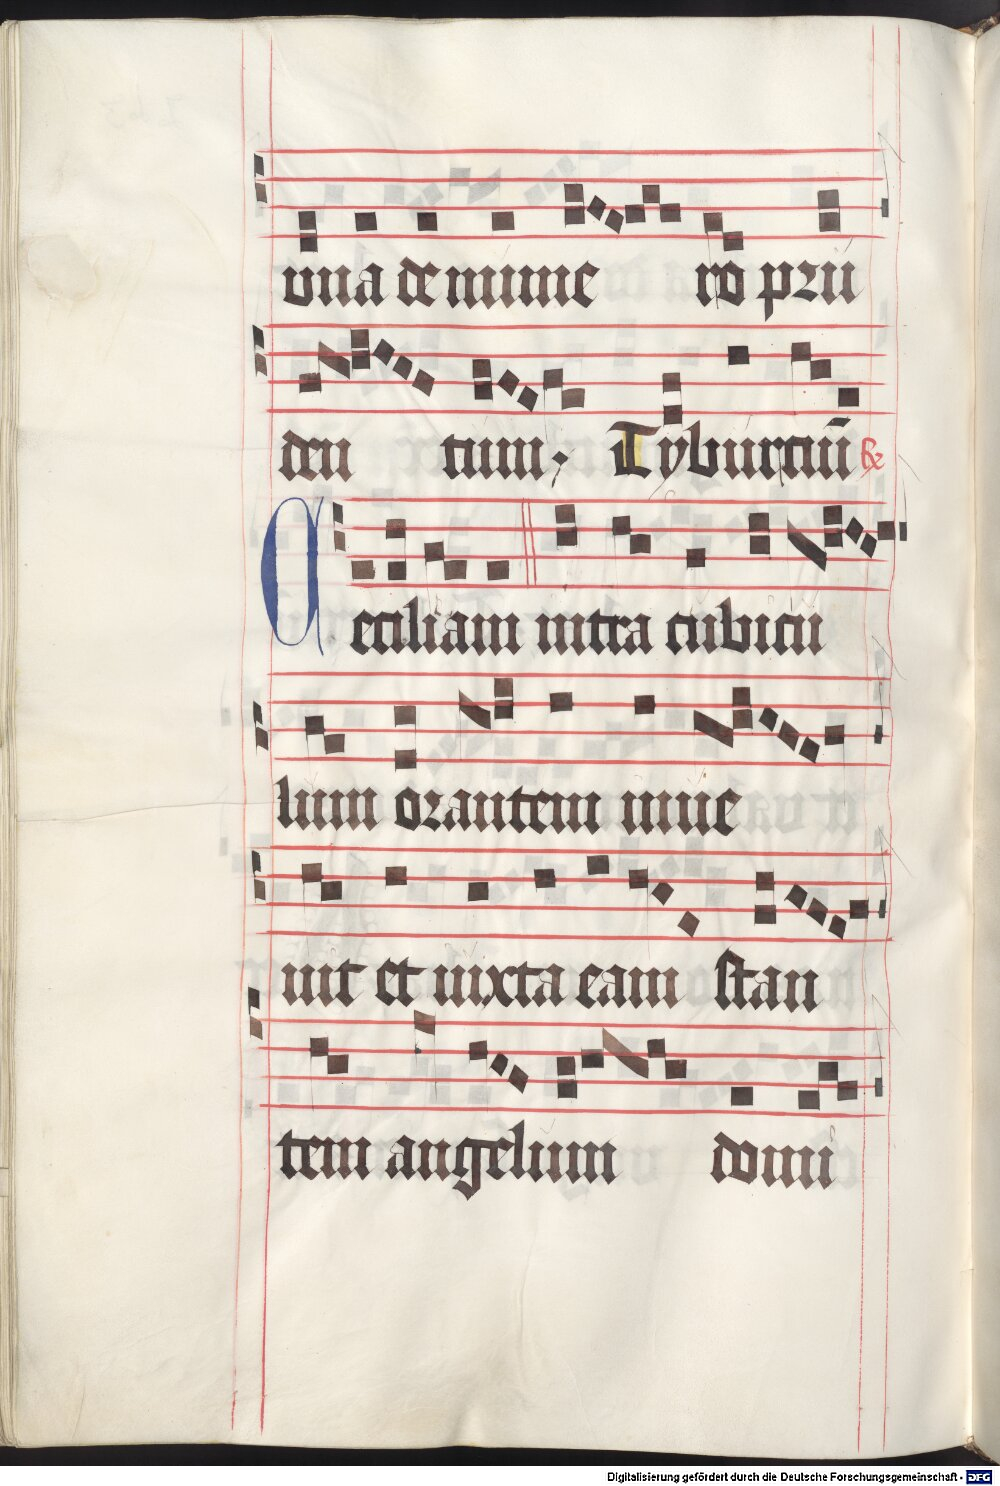 una de nume ro pru
den tum; Tyburtiū &
Ceciliam intra cubicu
lum orantem inue
nit et iuxta eam stan
tem angelum domi
Digitalisierung gefördert durch die Deutsche Forschungsgemeinschaft - DFG